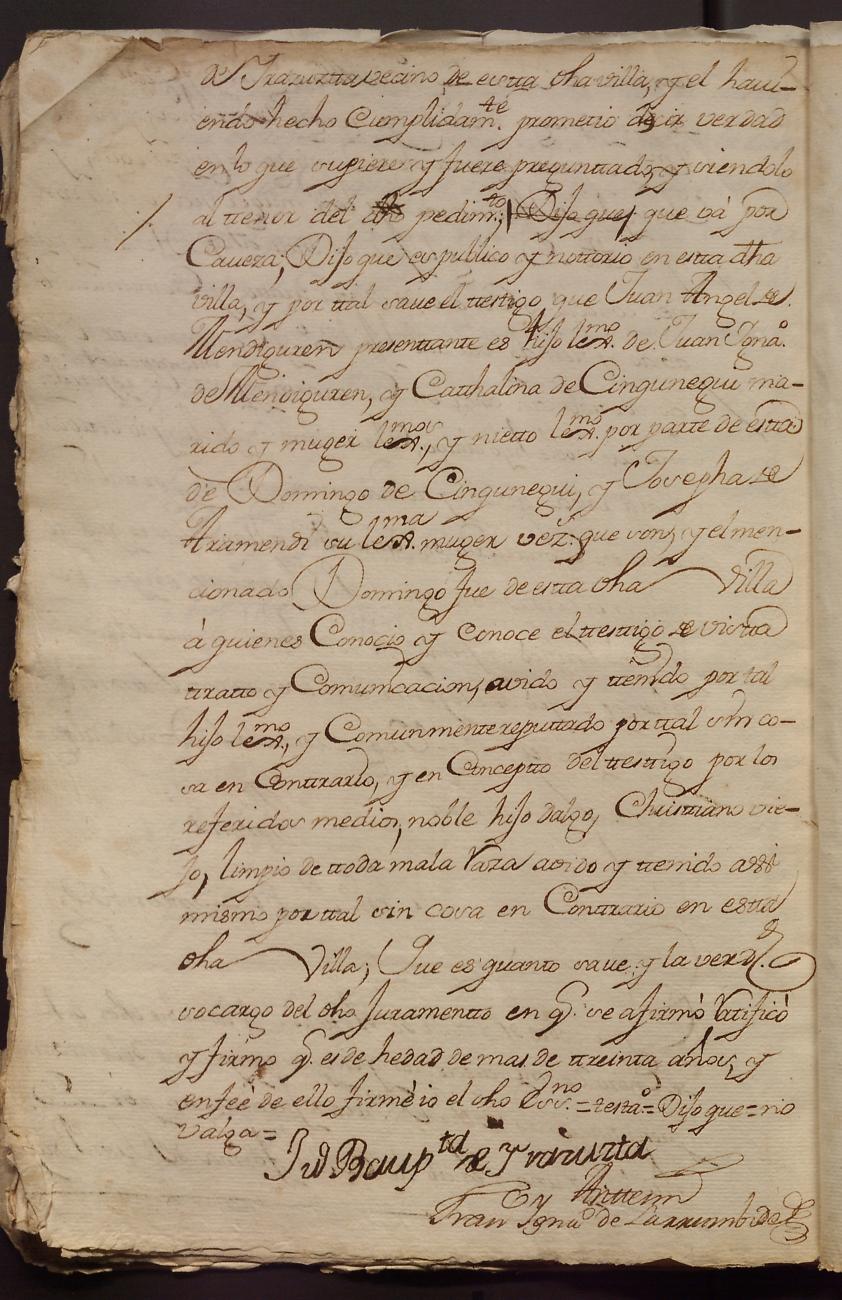 de Yrazuztta vecino de estta dha villa, y el havi-
endo hecho Cumplidamte. prometio decir verdad
en lo que supiere y fuere preguntado, y siendolo
al ttenor del pedimto, Dijo que que vá por
Cavera; Dijo que es publico y nottorio en estta dha
villa, y por ttal save el ttestigo que Juan Angel de
Mendiguren presenttante es hijo lexmo. de Juan Ygnao.
de Mendiguren, y Catthalina de Cingunegui ma-
rido y muger lexmos., y nietto lexmo. por parte de estta
de Domingo de Cingunegui, y Josepha de
Ariamendi su lexma. muger vezs. que son, y el men-
cionado Domingo fue de estta dha Villa
á quienes Conocio y conoce el ttesttigo de vistta
ttratto y Comunicacion, avido y ttenido por tal
hijo lexmo, y Comunmente reputtado por ttal sin co-
sa en Contrario, y en Concepto del ttesttigo por los
referidos medios, noble hijo dalgo, Christtiano vie-
jo, limpio de ttoda mala Raza avido y ttenido assi
mismo por ttal sin cosa en Contrario en estta
dha Villa; Que es quanto save, y la verd.
so cargo del dho Juramentto en q. se afirmó Ratificó
y firmo q. es de hedad de mas de ttreinta años, y
en feé de ello firmé io el dho Essno. = testao = Dijo que = no
valga =
Ju Baupta de Yrazuzta
Anttemi
Fran Ygnao de Larrumbide